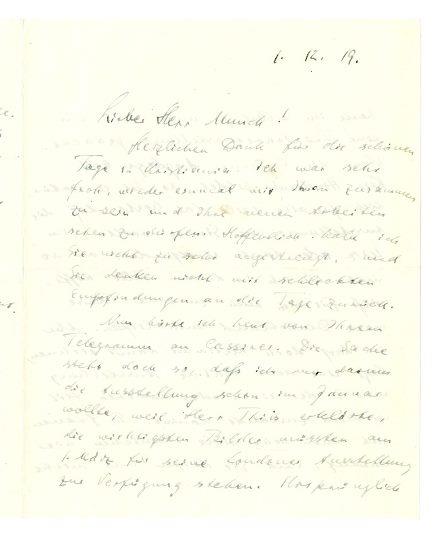 1. 12. 19.
Lieber Herr Munch!
Herzlichen Dank für die schönen
Tage in Kristiania. Ich war sehr
froh, wieder einmal mit Ihnen zusammen
zu sein und Ihre neuen Arbeiten
sehen zu dürfen. Hoffentlich habe ich
Sie nicht zu sehr angestrengt, und
Sie denken nicht mit schlechten
Empfindungen an die Tage zurück.
Nun hörte ich heut von Ihrem
Telegramm an Cassirer. Die Sache
steht doch so, daß ich nur darum
die Ausstellung schon im Januar
wollte, weil Herr Thiis erklärte,
die wichtigsten Bilder müssten am
1. März für seine Londoner Ausstellung
zur Verfügung stehen. Ursprünglich